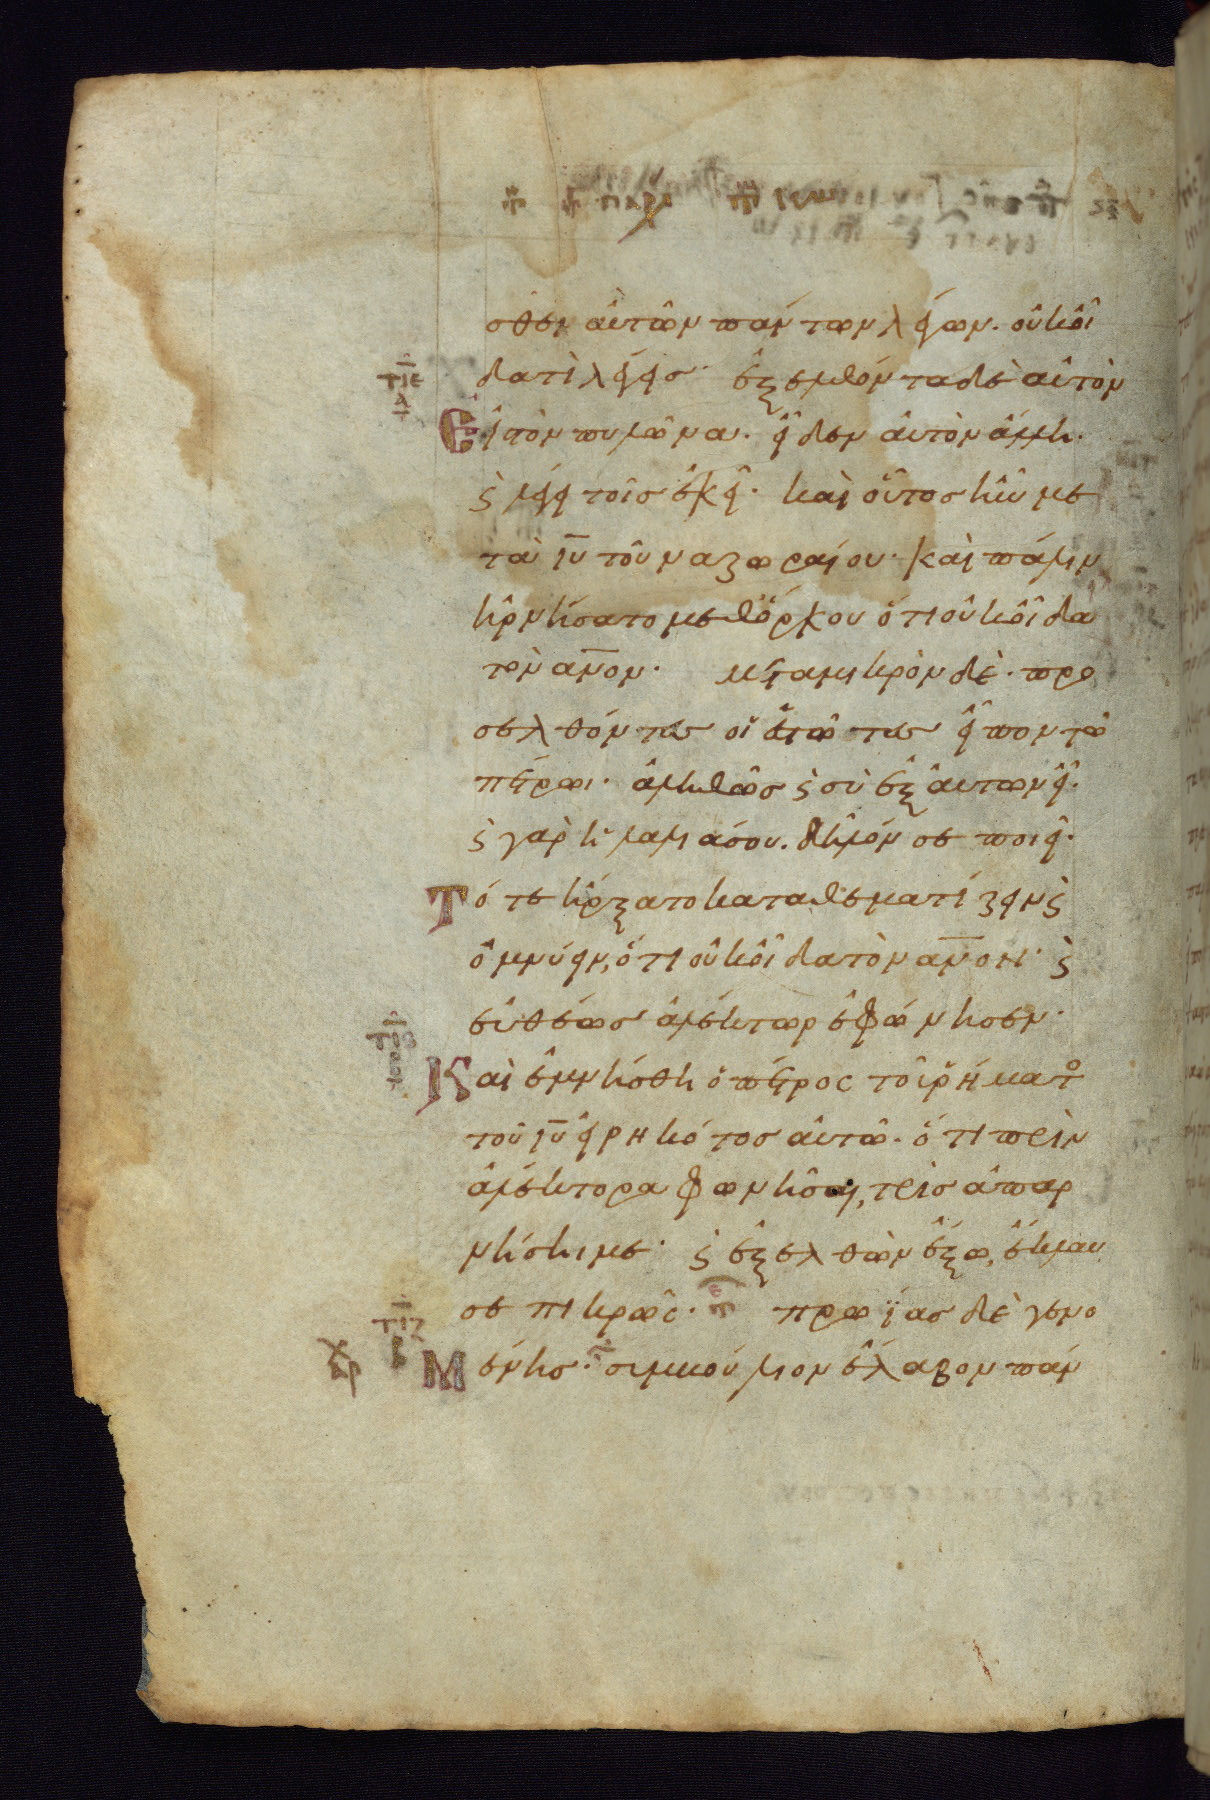 σθεν αὐτῶν πάντων λέγων. οὐκ οἶ
δα τί λέγεις· ἐξελθόντα δὲ αὐτὸν
Εἰς τὸν πυλῶνα. εἶδεν αὐτὸν ἄλλη.
ϛ λέγει τοῖς ἐκεῖ· καὶ οὗτος ἦν με
τὰ ιυ τοῦ ναζωραίου· καὶ πάλιν
ἠρνήσατο μεθ ὅρκου ὅτι οὐκ οἶδα
τὸν ανον· μετα μικρὸν δὲ· προ
σελθόντες οἱ ἑστῶτες εἶπον τῶ
πέτρωι· ἀληθῶς ϛ σὺ ἐξ αὐτων εἶ.
ϛ γὰρ ἡ λαλιά σου. δῆλόν σε ποιεῖ.
Τότε ἤρξατο καταθεματίζειν ϛ
ὀμνύειν, ὅτι οὐκ οἶδα τὸν ανον· ϛ
εὐθέως ἀλέκτωρ ἐφώνησεν·
Καὶ ἐμνήσθη ὁ πέτρος τοῦ ῥήματο
τοῦ ιυ εἰρηκότος αὐτῶ. ὅτι πρὶν
ἀλέκτορα φωνῆσαι, τρὶς ἀπαρ
νήσῃ με· ϛ ἐξελθὼν ἔξω, ἔκλαυ
σε πικρῶς. πρωΐας δὲ γενο
Μένης· συμβούλιον ἔλαβον πάν
τιε
α
τιϛ
τιζ
β